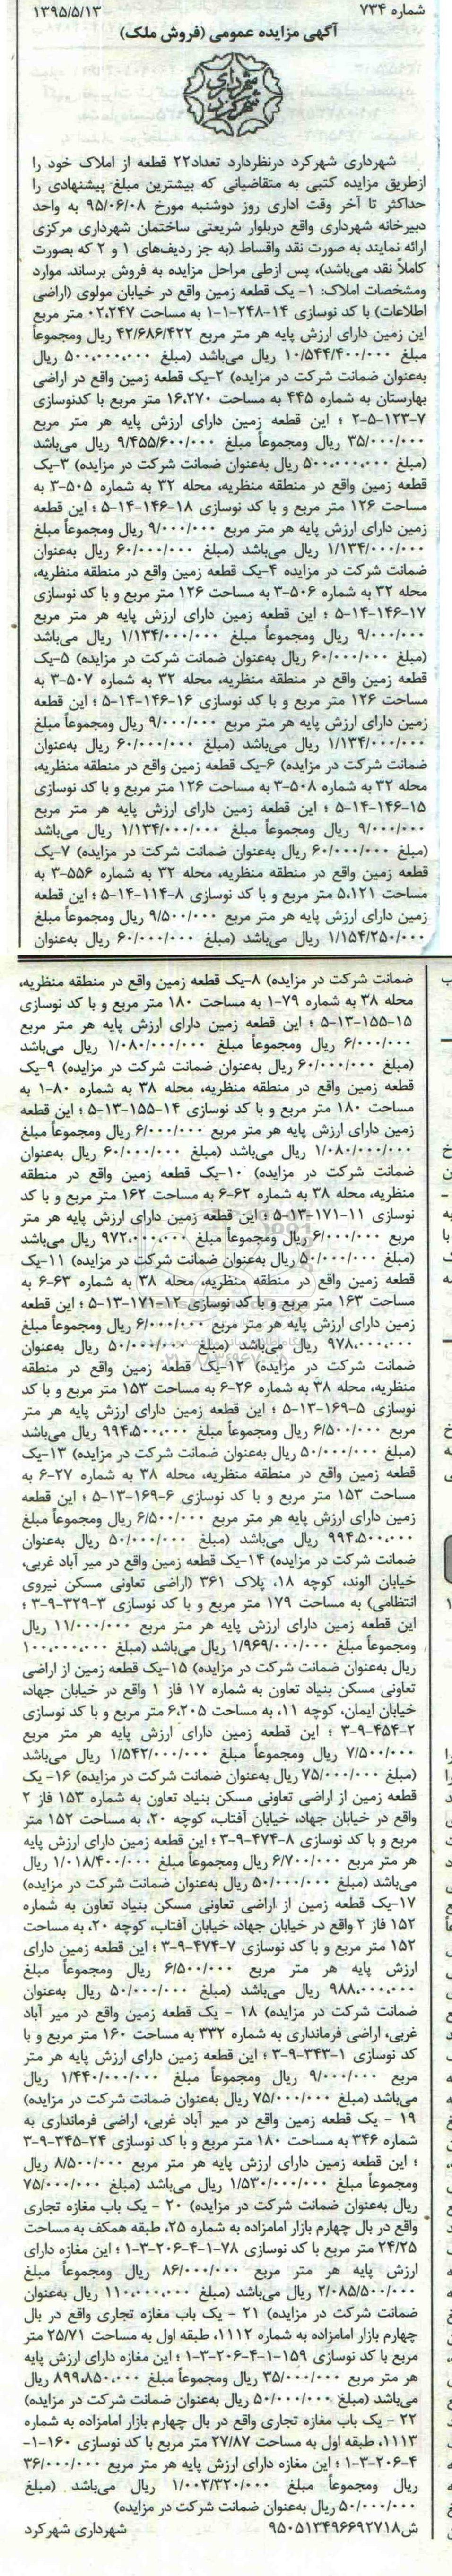 شماره ۷۳۴ ۱۳۹۵/۵/۱۳
آگهی مزایده عمومی (فروش ملک)
شهرداری شهرکرد
شهرداری شهرکرد درنظردارد تعداد۲۲ قطعه از املاک خود را
ازطریق مزایده کتبی به متقاضیانی که بیشترین مبلغ پیشنهادی را
حداکثر تا آخر وقت اداری روز دوشنبه مورخ ۹۵/۰۶/۰۸ به واحد
دبیرخانه شهرداری واقع دربلوار شریعتی ساختمان شهرداری مرکزی
ارائه نمایند به صورت نقد واقساط (به جز ردیف‌های ۱ و ۲ که بصورت
کاملاً نقد می‌باشد)، پس ازطی مراحل مزایده به فروش برساند. موارد
ومشخصات املاک: ۱- یک قطعه زمین واقع در خیابان مولوی (اراضی
اطلاعات) با کد نوسازی ۱۴-۲۴۸-۱-۱ به مساحت ۰۲،۲۴۷ متر مربع
این زمین دارای ارزش پایه هر متر مربع ۴۲/۶۸۶/۴۲۲ ریال ومجموعاً
مبلغ ۱۰/۵۴۴/۴۰۰/۰۰۰ ریال می‌باشد (مبلغ ۵۰۰،۰۰۰،۰۰۰ ریال
به‌عنوان ضمانت شرکت در مزایده) ۲-یک قطعه زمین واقع در اراضی
بهارستان به شماره ۴۴۵ به مساحت ۱۶،۲۷۰ متر مربع با کدنوسازی
۷-۱۲۳-۵-۲ ؛ این قطعه زمین دارای ارزش پایه هر متر مربع
۳۵/۰۰۰/۰۰۰ ریال ومجموعاً مبلغ ۹/۴۵۵/۶۰۰/۰۰۰ ریال می‌باشد
(مبلغ ۵۰۰،۰۰۰،۰۰۰ ریال به‌عنوان ضمانت شرکت در مزایده) ۳-یک
قطعه زمین واقع در منطقه منظریه، محله ۳۲ به شماره ۵۰۵-۳ به
مساحت ۱۲۶ متر مربع و با کد نوسازی ۱۸-۱۴۶-۱۴-۵ ؛ این قطعه
زمین دارای ارزش پایه هر متر مربع ۹/۰۰۰/۰۰۰ ریال ومجموعاً مبلغ
۱/۱۳۴/۰۰۰/۰۰۰ ریال می‌باشد (مبلغ ۶۰/۰۰۰/۰۰۰ ریال به‌عنوان
ضمانت شرکت در مزایده ۴-یک قطعه زمین واقع در منطقه منظریه،
محله ۳۲ به شماره ۵۰۶-۳ به مساحت ۱۲۶ متر مربع و با کد نوسازی
۱۷-۱۴۶-۱۴-۵ ؛ این قطعه زمین دارای ارزش پایه هر متر مربع
۹/۰۰۰/۰۰۰ ریال ومجموعاً مبلغ ۱/۱۳۴/۰۰۰/۰۰۰ ریال می‌باشد
(مبلغ ۶۰/۰۰۰/۰۰۰ ریال به‌عنوان ضمانت شرکت در مزایده) ۵-یک
قطعه زمین واقع در منطقه منظریه، محله ۳۲ به شماره ۵۰۷-۳ به
مساحت ۱۲۶ متر مربع و با کد نوسازی ۱۶-۱۴۶-۱۴-۵ ؛ این قطعه
زمین دارای ارزش پایه هر متر مربع ۹/۰۰۰/۰۰۰ ریال ومجموعاً مبلغ
۱/۱۳۴/۰۰۰/۰۰۰ ریال می‌باشد (مبلغ ۶۰/۰۰۰/۰۰۰ ریال به‌عنوان
ضمانت شرکت در مزایده) ۶-یک قطعه زمین واقع در منطقه منظریه،
محله ۳۲ به شماره ۵۰۸-۳ به مساحت ۱۲۶ متر مربع و با کد نوسازی
۱۵-۱۴۶-۱۴-۵ ؛ این قطعه زمین دارای ارزش پایه هر متر مربع
۹/۰۰۰/۰۰۰ ریال ومجموعاً مبلغ ۱/۱۳۴/۰۰۰/۰۰۰ ریال می‌باشد
(مبلغ ۶۰/۰۰۰/۰۰۰ ریال به‌عنوان ضمانت شرکت در مزایده) ۷-یک
قطعه زمین واقع در منطقه منظریه، محله ۳۲ به شماره ۵۵۶-۳ به
مساحت ۵،۱۲۱ متر مربع و با کد نوسازی ۸-۱۱۴-۱۴-۵ ؛ این قطعه
زمین دارای ارزش پایه هر متر مربع ۹/۵۰۰/۰۰۰ ریال ومجموعاً مبلغ
۱/۱۵۴/۲۵۰/۰۰۰ ریال می‌باشد (مبلغ ۶۰/۰۰۰/۰۰۰ ریال به‌عنوان
ضمانت شرکت در مزایده) ۸-یک قطعه زمین واقع در منطقه منظریه،
محله ۳۸ به شماره ۷۹-۱ به مساحت ۱۸۰ متر مربع و با کد نوسازی
۱۵-۱۵۵-۱۳-۵ ؛ این قطعه زمین دارای ارزش پایه هر متر مربع
۶/۰۰۰/۰۰۰ ریال ومجموعاً مبلغ ۱/۰۸۰/۰۰۰/۰۰۰ ریال می‌باشد
(مبلغ ۶۰/۰۰۰/۰۰۰ ریال به‌عنوان ضمانت شرکت در مزایده) ۹-یک
قطعه زمین واقع در منطقه منظریه، محله ۳۸ به شماره ۸۰-۱ به
مساحت ۱۸۰ متر مربع و با کد نوسازی ۱۴-۱۵۵-۱۳-۵ ؛ این قطعه
زمین دارای ارزش پایه هر متر مربع ۶/۰۰۰/۰۰۰ ریال ومجموعاً مبلغ
۱/۰۸۰/۰۰۰/۰۰۰ ریال می‌باشد (مبلغ ۶۰/۰۰۰/۰۰۰ ریال به‌عنوان
ضمانت شرکت در مزایده) ۱۰-یک قطعه زمین واقع در منطقه
منظریه، محله ۳۸ به شماره ۶۲-۶ به مساحت ۱۶۲ متر مربع و با کد
نوسازی ۱۱-۱۷۱-۱۳-۵ ؛ این قطعه زمین دارای ارزش پایه هر متر
مربع ۶/۰۰۰/۰۰۰ ریال ومجموعاً مبلغ ۹۷۲،۰۰۰،۰۰۰ ریال می‌باشد
(مبلغ ۵۰/۰۰۰/۰۰۰ ریال به‌عنوان ضمانت شرکت در مزایده) ۱۱-یک
قطعه زمین واقع در منطقه منظریه، محله ۳۸ به شماره ۶۳-۶ به
مساحت ۱۶۳ متر مربع و با کد نوسازی ۱۲-۱۷۱-۱۳-۵ ؛ این قطعه
زمین دارای ارزش پایه هر متر مربع ۶/۰۰۰/۰۰۰ ریال ومجموعاً مبلغ
۹۷۸،۰۰۰،۰۰۰ ریال می‌باشد (مبلغ ۵۰/۰۰۰/۰۰۰ ریال به‌عنوان
ضمانت شرکت در مزایده) ۱۲-یک قطعه زمین واقع در منطقه
منظریه، محله ۳۸ به شماره ۲۶-۶ به مساحت ۱۵۳ متر مربع و با کد
نوسازی ۵-۱۶۹-۱۳-۵ ؛ این قطعه زمین دارای ارزش پایه هر متر
مربع ۶/۵۰۰/۰۰۰ ریال ومجموعاً مبلغ ۹۹۴،۵۰۰،۰۰۰ ریال می‌باشد
(مبلغ ۵۰/۰۰۰/۰۰۰ ریال به‌عنوان ضمانت شرکت در مزایده) ۱۳-یک
قطعه زمین واقع در منطقه منظریه، محله ۳۸ به شماره ۲۷-۶ به
مساحت ۱۵۳ متر مربع و با کد نوسازی ۶-۱۶۹-۱۳-۵ ؛ این قطعه
زمین دارای ارزش پایه هر متر مربع ۶/۵۰۰/۰۰۰ ریال ومجموعاً مبلغ
۹۹۴،۵۰۰،۰۰۰ ریال می‌باشد (مبلغ ۵۰/۰۰۰/۰۰۰ ریال به‌عنوان
ضمانت شرکت در مزایده) ۱۴-یک قطعه زمین واقع در میر آباد غربی،
خیابان الوند، کوچه ۱۸، پلاک ۳۶۱ (اراضی تعاونی مسکن نیروی
انتظامی) به مساحت ۱۷۹ متر مربع و با کد نوسازی ۳-۳۲۹-۹-۳ ؛
این قطعه زمین دارای ارزش پایه هر متر مربع ۱۱/۰۰۰/۰۰۰ ریال
ومجموعاً مبلغ ۱/۹۶۹/۰۰۰/۰۰۰ ریال می‌باشد (مبلغ ۱۰۰،۰۰۰،۰۰۰
ریال به‌عنوان ضمانت شرکت در مزایده) ۱۵-یک قطعه زمین از اراضی
تعاونی مسکن بنیاد تعاون به شماره ۱۷ فاز ۱ واقع در خیابان جهاد،
خیابان ایمان، کوچه ۱۱، به مساحت ۶،۲۰۵ متر مربع و با کد نوسازی
۲-۴۵۴-۹-۳ ؛ این قطعه زمین دارای ارزش پایه هر متر مربع
۷/۵۰۰/۰۰۰ ریال ومجموعاً مبلغ ۱/۵۴۲/۰۰۰/۰۰۰ ریال می‌باشد
(مبلغ ۷۵/۰۰۰/۰۰۰ ریال به‌عنوان ضمانت شرکت در مزایده) ۱۶- یک
قطعه زمین از اراضی تعاونی مسکن بنیاد تعاون به شماره ۱۵۳ فاز ۲
واقع در خیابان جهاد، خیابان آفتاب، کوچه ۲۰، به مساحت ۱۵۲ متر
مربع و با کد نوسازی ۸-۴۷۴-۹-۳ ؛ این قطعه زمین دارای ارزش پایه
هر متر مربع ۶/۷۰۰/۰۰۰ ریال ومجموعاً مبلغ ۱/۰۱۸/۴۰۰/۰۰۰ ریال
می‌باشد (مبلغ ۵۰/۰۰۰/۰۰۰ ریال به‌عنوان ضمانت شرکت در مزایده)
۱۷-یک قطعه زمین از اراضی تعاونی مسکن بنیاد تعاون به شماره
۱۵۲ فاز ۲ واقع در خیابان جهاد، خیابان آفتاب، کوچه ۲۰، به مساحت
۱۵۲ متر مربع و با کد نوسازی ۷-۴۷۴-۹-۳ ؛ این قطعه زمین دارای
ارزش پایه هر متر مربع ۶/۵۰۰/۰۰۰ ریال ومجموعاً مبلغ
۹۸۸،۰۰۰،۰۰۰ ریال می‌باشد (مبلغ ۵۰/۰۰۰/۰۰۰ ریال به‌عنوان
ضمانت شرکت در مزایده) ۱۸ - یک قطعه زمین واقع در میر آباد
غربی، اراضی فرمانداری به شماره ۳۳۲ به مساحت ۱۶۰ متر مربع و با
کد نوسازی ۱-۳۴۳-۹-۳ ؛ این قطعه زمین دارای ارزش پایه هر متر
مربع ۹/۰۰۰/۰۰۰ ریال ومجموعاً مبلغ ۱/۴۴۰/۰۰۰/۰۰۰ ریال
می‌باشد (مبلغ ۷۵/۰۰۰/۰۰۰ ریال به‌عنوان ضمانت شرکت در مزایده)
۱۹ - یک قطعه زمین واقع در میر آباد غربی، اراضی فرمانداری به
شماره ۳۴۶ به مساحت ۱۸۰ متر مربع و با کد نوسازی ۲۴-۳۴۵-۹-۳
؛ این قطعه زمین دارای ارزش پایه هر متر مربع ۸/۵۰۰/۰۰۰ ریال
ومجموعاً مبلغ ۱/۵۳۰/۰۰۰/۰۰۰ ریال می‌باشد (مبلغ ۷۵/۰۰۰/۰۰۰
ریال به‌عنوان ضمانت شرکت در مزایده) ۲۰ - یک باب مغازه تجاری
واقع در بال چهارم بازار امامزاده به شماره ۲۵، طبقه همکف به مساحت
۲۴/۲۵ متر مربع با کد نوسازی ۷۸-۱-۴-۲۰۶-۳-۱ ؛ این مغازه دارای
ارزش پایه هر متر مربع ۸۶/۰۰۰/۰۰۰ ریال ومجموعاً مبلغ
۲/۰۸۵/۵۰۰/۰۰۰ ریال می‌باشد (مبلغ ۱۱۰،۰۰۰،۰۰۰ ریال به‌عنوان
ضمانت شرکت در مزایده) ۲۱ - یک باب مغازه تجاری واقع در بال
چهارم بازار امامزاده به شماره ۱۱۱۲، طبقه اول به مساحت ۲۵/۷۱ متر
مربع با کد نوسازی ۱۵۹-۱-۴-۲۰۶-۳-۱ ؛ این مغازه دارای ارزش پایه
هر متر مربع ۳۵/۰۰۰/۰۰۰ ریال ومجموعاً مبلغ ۸۹۹،۸۵۰،۰۰۰ ریال
می‌باشد (مبلغ ۵۰/۰۰۰/۰۰۰ ریال به‌عنوان ضمانت شرکت در مزایده)
۲۲ - یک باب مغازه تجاری واقع در بال چهارم بازار امامزاده به شماره
۱۱۱۳، طبقه اول به مساحت ۲۷/۸۷ متر مربع با کد نوسازی ۱۶۰-۱-
۴-۲۰۶-۳-۱ ؛ این مغازه دارای ارزش پایه هر متر مربع ۳۶/۰۰۰/۰۰۰
ریال ومجموعاً مبلغ ۱/۰۰۳/۳۲۰/۰۰۰ ریال می‌باشد (مبلغ
۵۰/۰۰۰/۰۰۰ ریال به‌عنوان ضمانت شرکت در مزایده)
ش۹۵۰۵۱۳۴۹۶۶۹۲۷۱۸ شهرداری شهرکرد